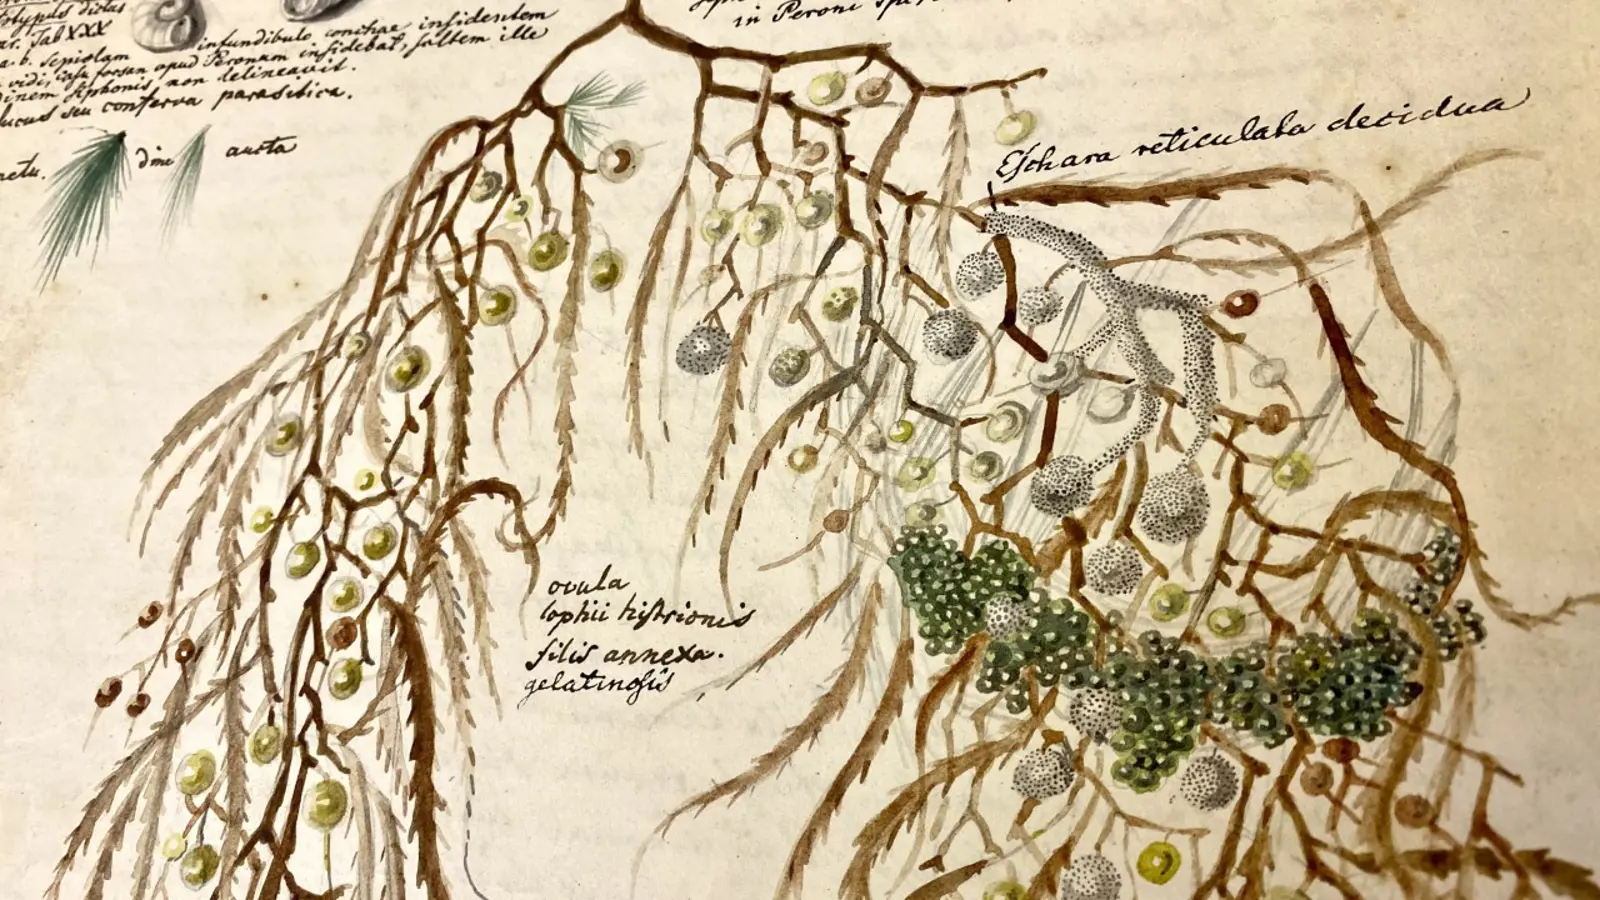 polypus dictus
ar. Tab XXX
a. b. sepiolam infundibulo conchae insidentem
vidi, casu forsan apud Peronum insidebat, saltem ille
dinem siphonis, non delineavit.
ucus seu conferva parasitica.
in Peroni
netu. dim aucta
Eschara reticulata decidua
ovula
lophii histrionis
filis annexa.
gelatinosis